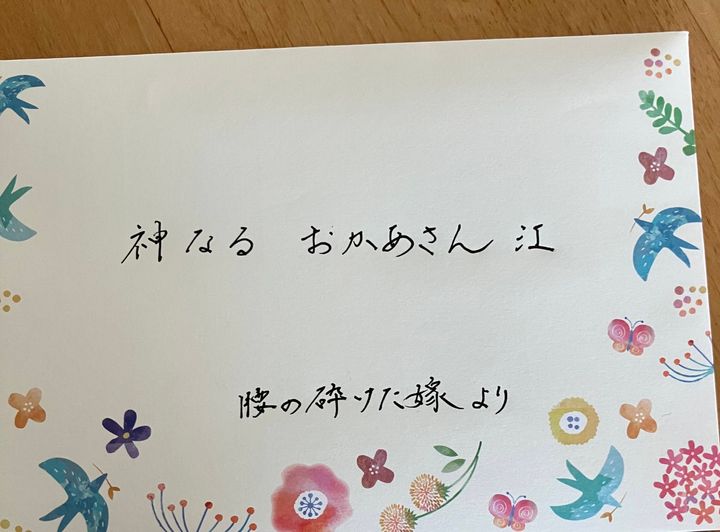 神なる おかあさん 江
腰の砕けた嫁より